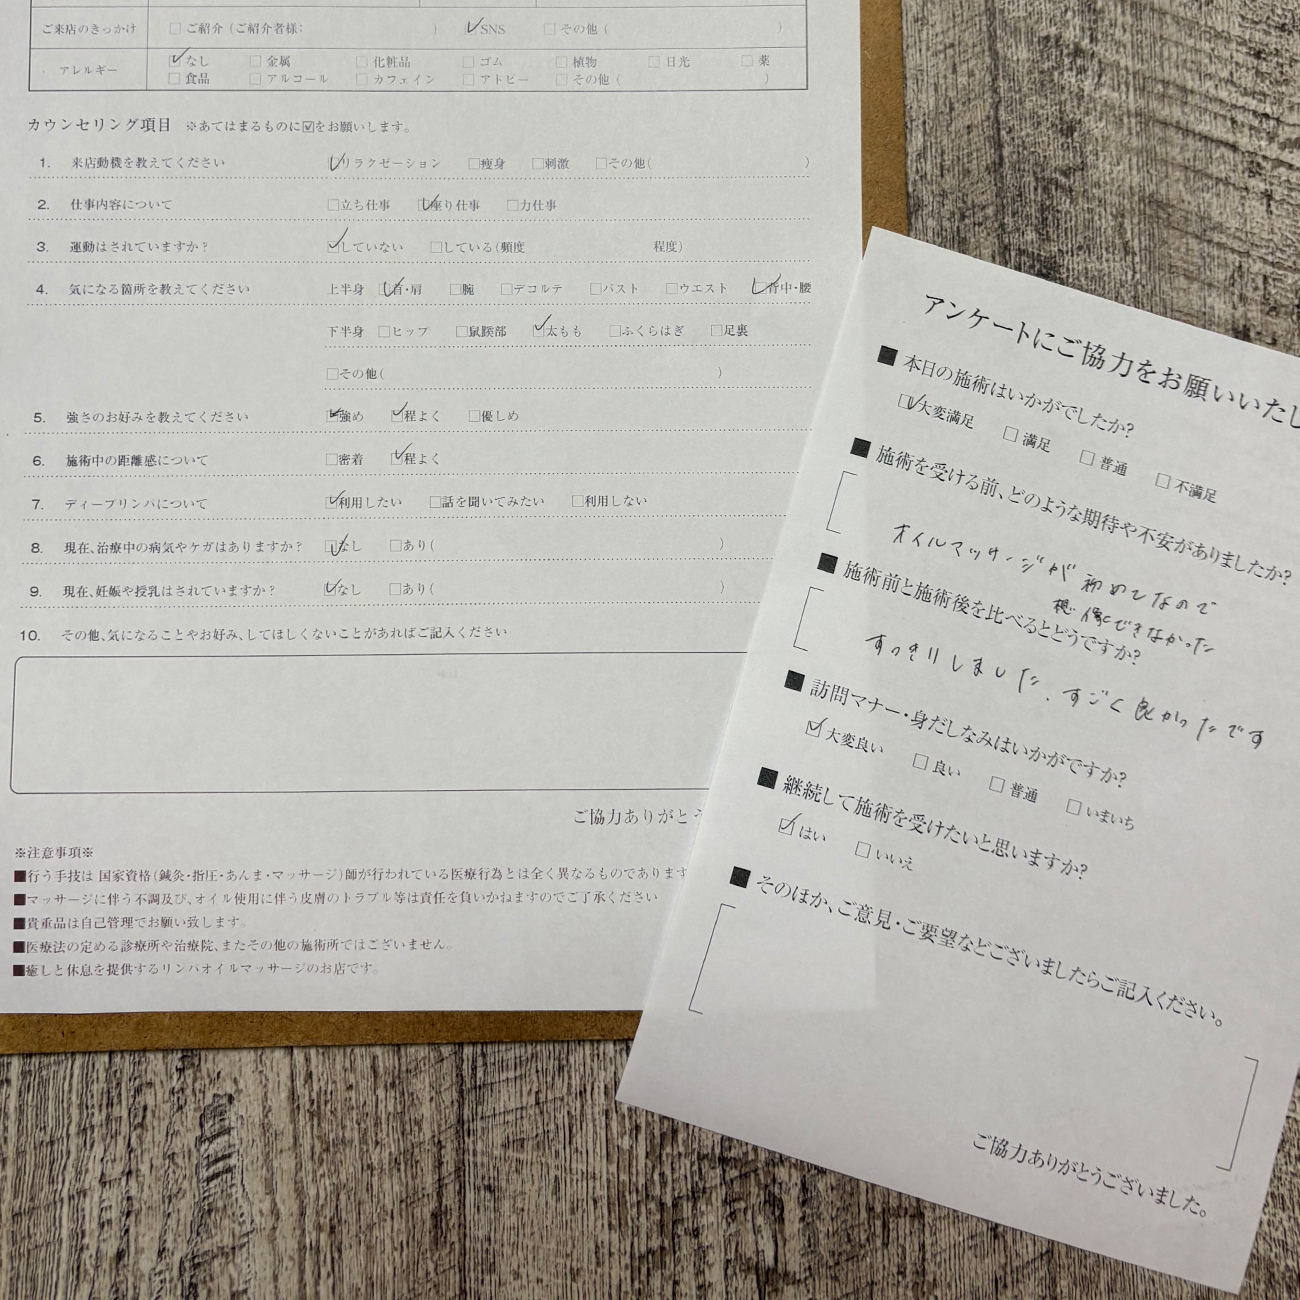 ご来店のきっかけ □ご紹介(ご紹介者様: ) ☑SNS □その他( )
アレルギー ☑なし □金属 □化粧品 □ゴム □植物 □日光 □薬
□食品 □アルコール □カフェイン □アトピー □その他( )
カウンセリング項目 ※あてはまるものに☑をお願いします。
1. 来店動機を教えてください ☑リラクゼーション □痩身 □刺激 □その他( )
2. 仕事内容について □立ち仕事 ☑座り仕事 □力仕事
3. 運動はされていますか? ☑していない □している(頻度 程度)
4. 気になる箇所を教えてください 上半身 ☑首・肩 □腕 □デコルテ □バスト □ウエスト ☑背中・腰
下半身 □ヒップ □鼠蹊部 ☑太もも □ふくらはぎ □足裏
□その他( )
5. 強さのお好みを教えてください ☑強め ☑程よく □優しめ
6. 施術中の距離感について □密着 ☑程よく
7. ディープリンパについて ☑利用したい □話を聞いてみたい □利用しない
8. 現在、治療中の病気やケガはありますか? ☑なし □あり( )
9. 現在、妊娠や授乳はされていますか? ☑なし □あり( )
10. その他、気になることやお好み、してほしくないことがあればご記入ください
ご協力ありがとう
※注意事項※
■行う手技は 国家資格(鍼灸・指圧・あんま・マッサージ)師が行われている医療行為とは全く異なるものであります
■マッサージに伴う不調及び、オイル使用に伴う皮膚のトラブル等は責任を負いかねますのでご了承ください
■貴重品は自己管理でお願い致します。
■医療法の定める診療所や治療院、またその他の施術所ではございません。
■癒しと休息を提供するリンパオイルマッサージのお店です。
アンケートにご協力をお願いいたし
■ 本日の施術はいかがでしたか?
☑大変満足 □満足 □普通 □不満足
■ 施術を受ける前、どのような期待や不安がありましたか?
オイルマッサージが初めてなので
想像できなかった
■ 施術前と施術後を比べるとどうですか?
すっきりしました、すごく良かったです
■ 訪問マナー・身だしなみはいかがですか?
☑大変良い □良い □普通 □いまいち
■ 継続して施術を受けたいと思いますか?
☑はい □いいえ
■ そのほか、ご意見・ご要望などございましたらご記入ください。
ご協力ありがとうございました。